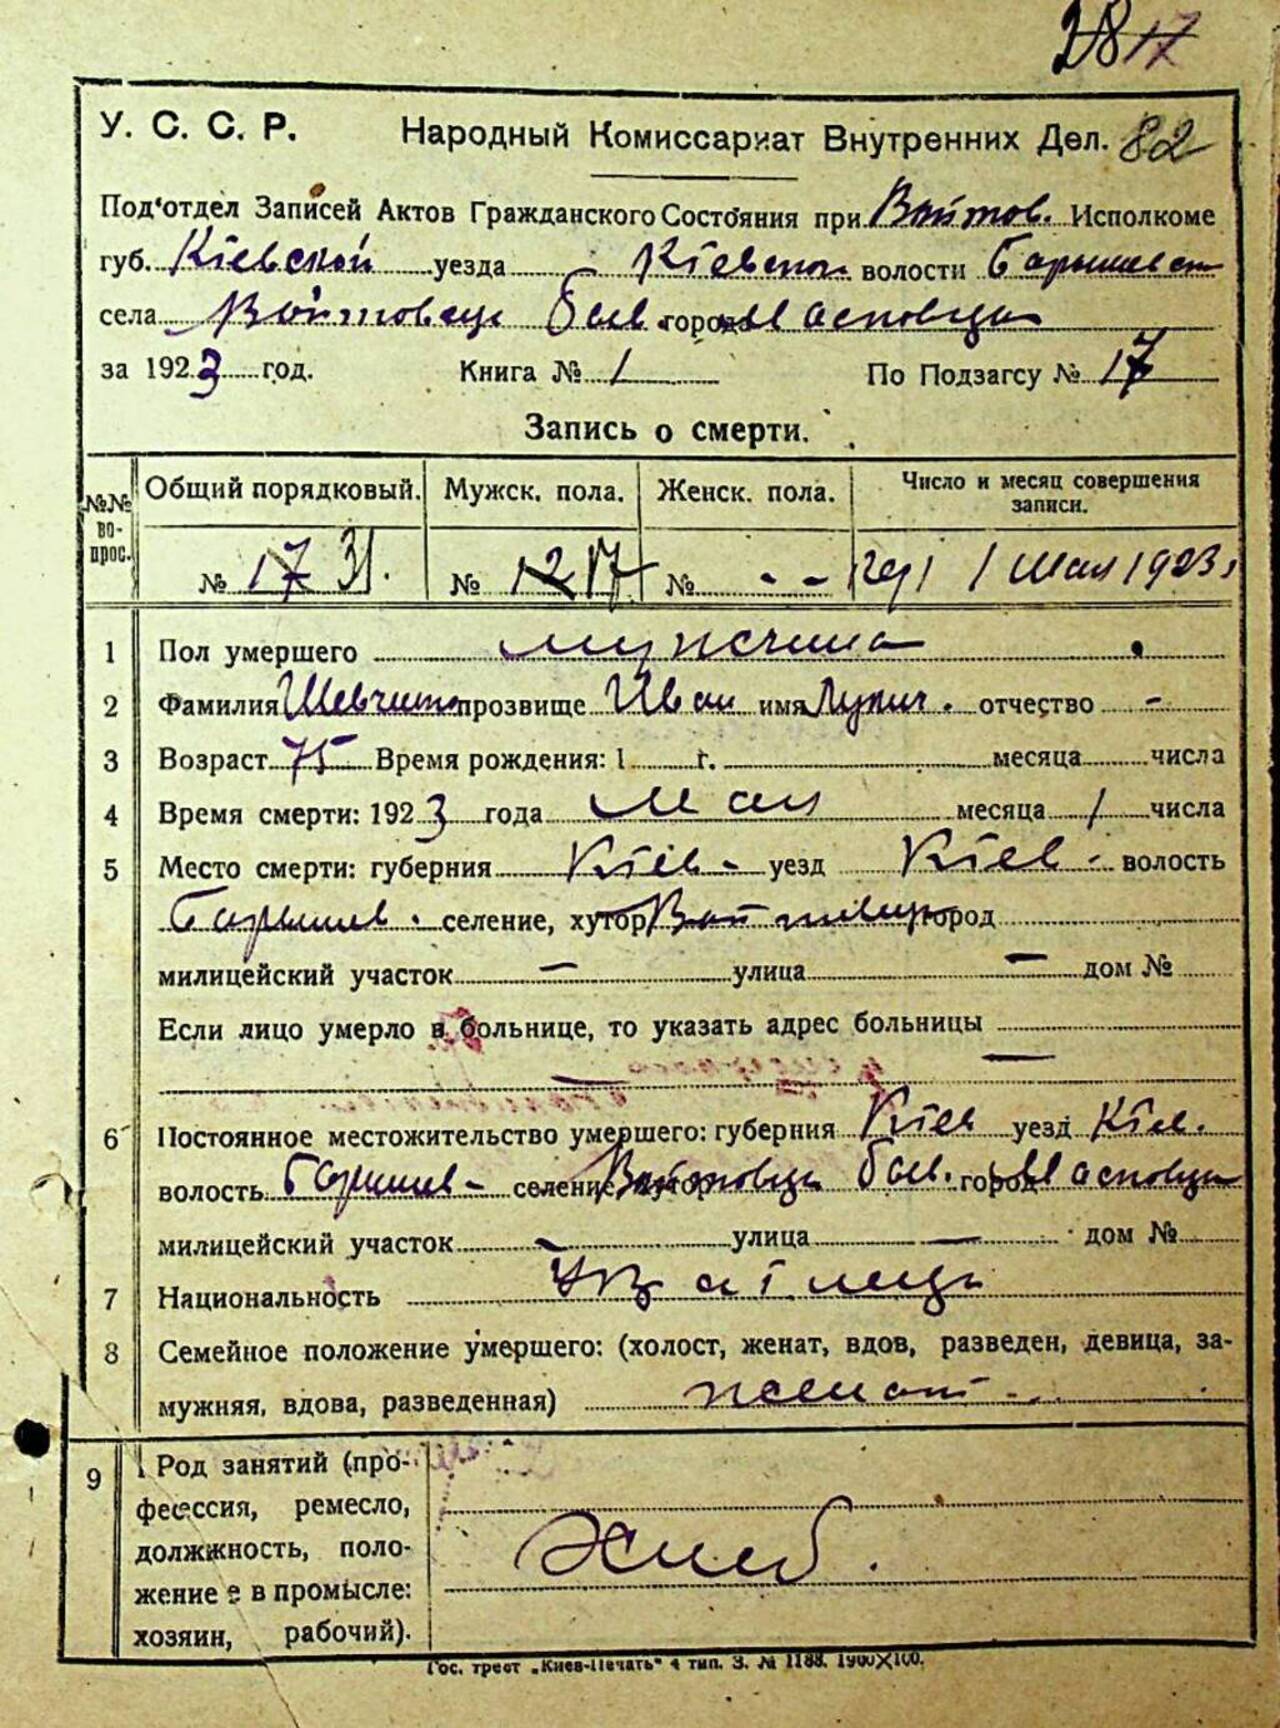 2817
У. С. С. Р. Народный Комиссариат Внутренних Дел. 82
Под'отдел Записей Актов Гражданского Состояния при Войтов. Исполкоме
губ. Кіевской уезда Кіевской волости Барышевск
села Войтовцы город
за 1923 год. Книга № 1 По Подзагсу № 17
Запись о смерти.
№№ вопрос. Общий порядковый. Мужск. пола. Женск. пола. Число и месяц совершения записи.
№ 17 31. № 12 17 № - - 1 Мая 1923
1 Пол умершего мужчина
2 Фамилия прозвище Иван имя Лукич. отчество -
3 Возраст 75 Время рождения: 1 г. месяца числа
4 Время смерти: 1923 года Мая месяца 1 числа
5 Место смерти: губерния Кіев- уезд Кіев- волость
Барышев. селение, хутор Войтовцы город
милицейский участок — улица — дом №
Если лицо умерло в больнице, то указать адрес больницы —
—
6 Постоянное местожительство умершего: губерния Кіев уезд Кіев.
волость Барышев- селение, хутор Войтовцы город
милицейский участок - улица — дом №
7 Национальность
8 Семейное положение умершего: (холост, женат, вдов, разведен, девица, за-
мужняя, вдова, разведенная) женат -
9 Род занятий (про-
фессия, ремесло,
должжность, поло-
жение е в промысле:
хозяин, рабочий).
Хлеб.
Гос. трест „Киев-Печать" 4 тип. З. № 1188. 1900×100.